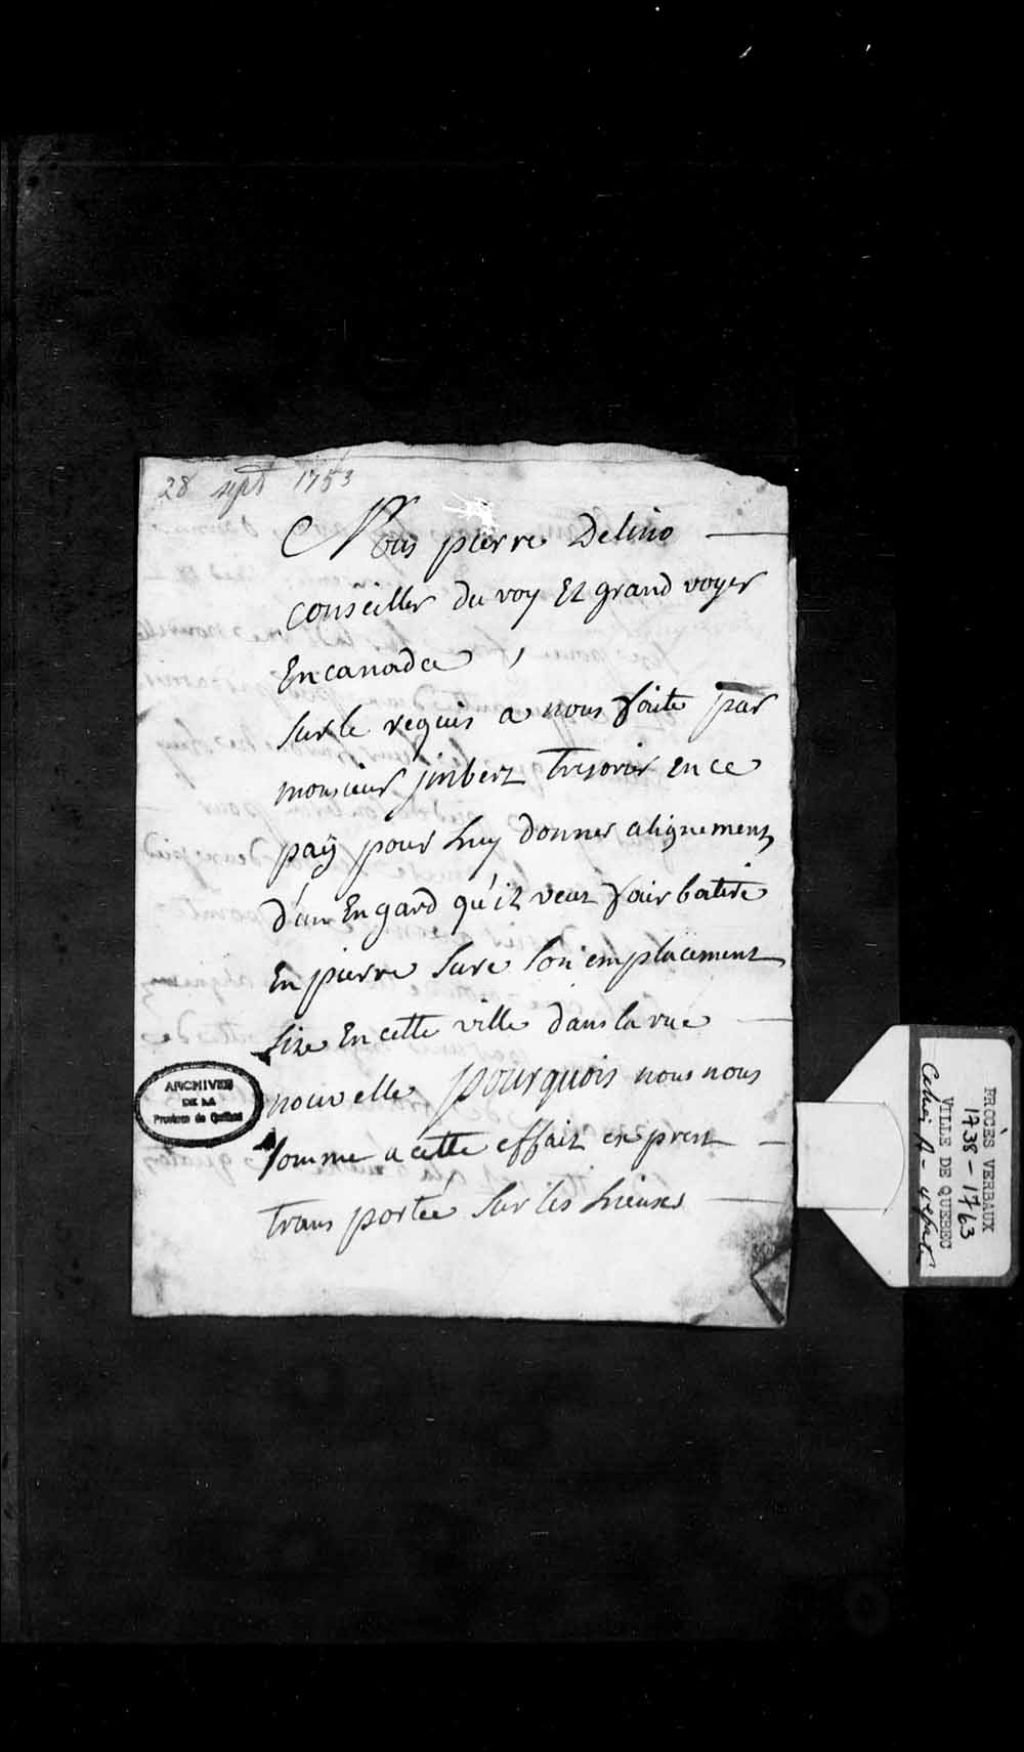 28 sept 1753
Nous pierre Delino
conseiller du roy Et grand voyer
En canada,
sur le requis a nous faite par
monsieur jmbert Tresorier en ce
païs pour luy donner alignement
d'un Engard qu'il veut fair batire
En pierre sure son emplacement
size En cette ville dans la rue
nouvelle pourquois nous nous
somme a cette effait exprest
trans portée sur les Lieuxs
ARCHIVES
DE LA
Province de Québec
PROCÈS VERBAUX
1738 - 1763
VILLE DE QUEBEC